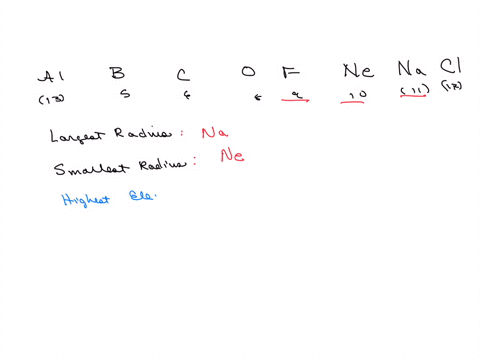 Al B C O F Ne Na Cl
(13) 5 6 8 9 10 (11)
Largest Radius : Na
Smallest Radius : Ne
Highest Ele.